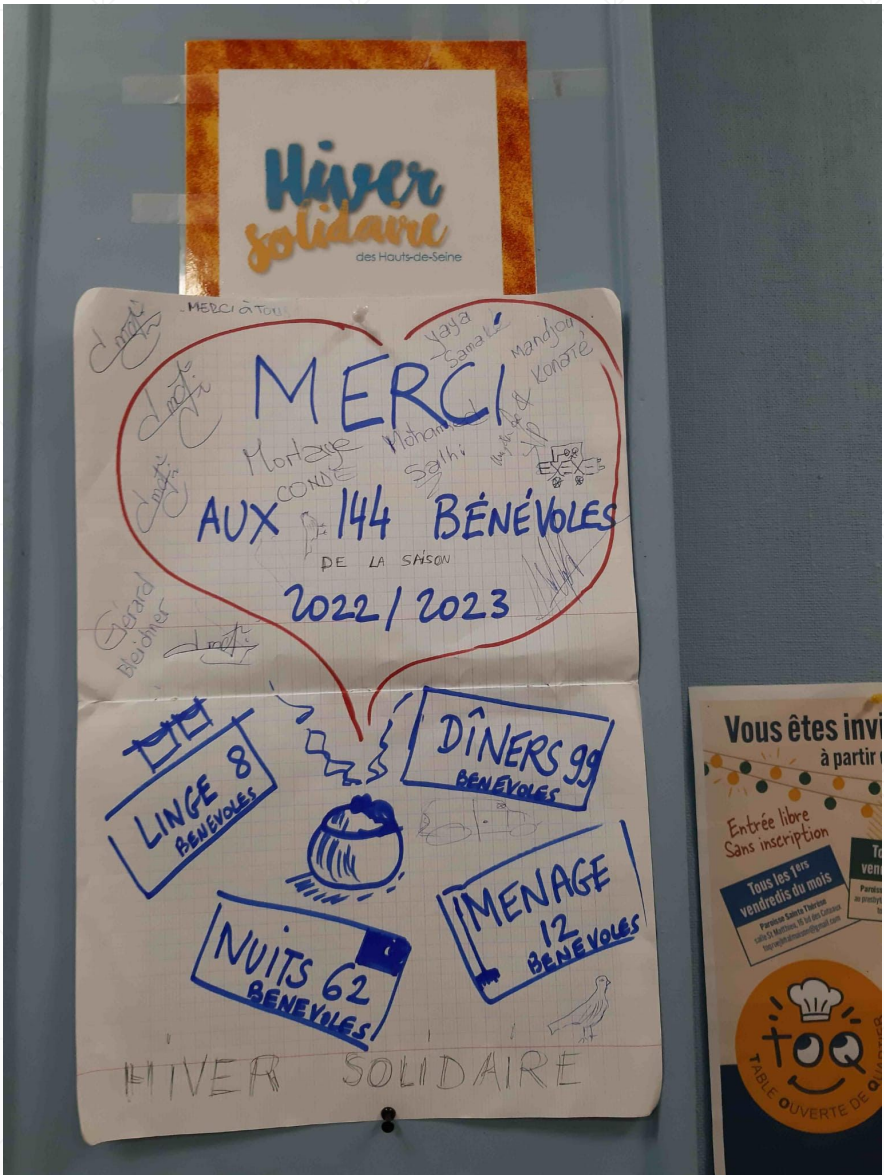 Hiver
solidaire
des Hauts-de-Seine
MERCI à TOU
Yaya
Samaké
Mandjou
Konaté
MERCI
Mortaye
CONDÉ
Mohamed
Salhi
EXEXE
AUX 144 BÉNÉVOLES
DE LA SAISON
2022/2023
Gérard
Bleichner
DÎNERS 99
BENEVOLES
LINGE 8
BENEVOLES
MENAGE
12
BENEVOLES
NUITS 62
BENEVOLES
HIVER SOLIDAIRE
Vous êtes invi
à partir
Entrée libre
Sans inscription
Tous les 1ers
vendredis du mois
Paroisse Sainte Thérèse
To
ven
Parois
toQ
TABLE OUVERTE DE QUARTIER